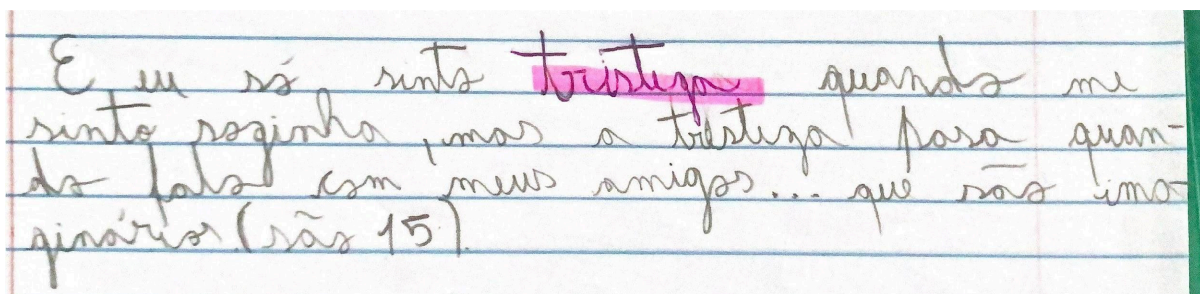 E eu só sinto tristeza quando me
sinto sozinha, mas a tristeza passa quan-
do falo com meus amigos... que são ima-
ginários (são 15).